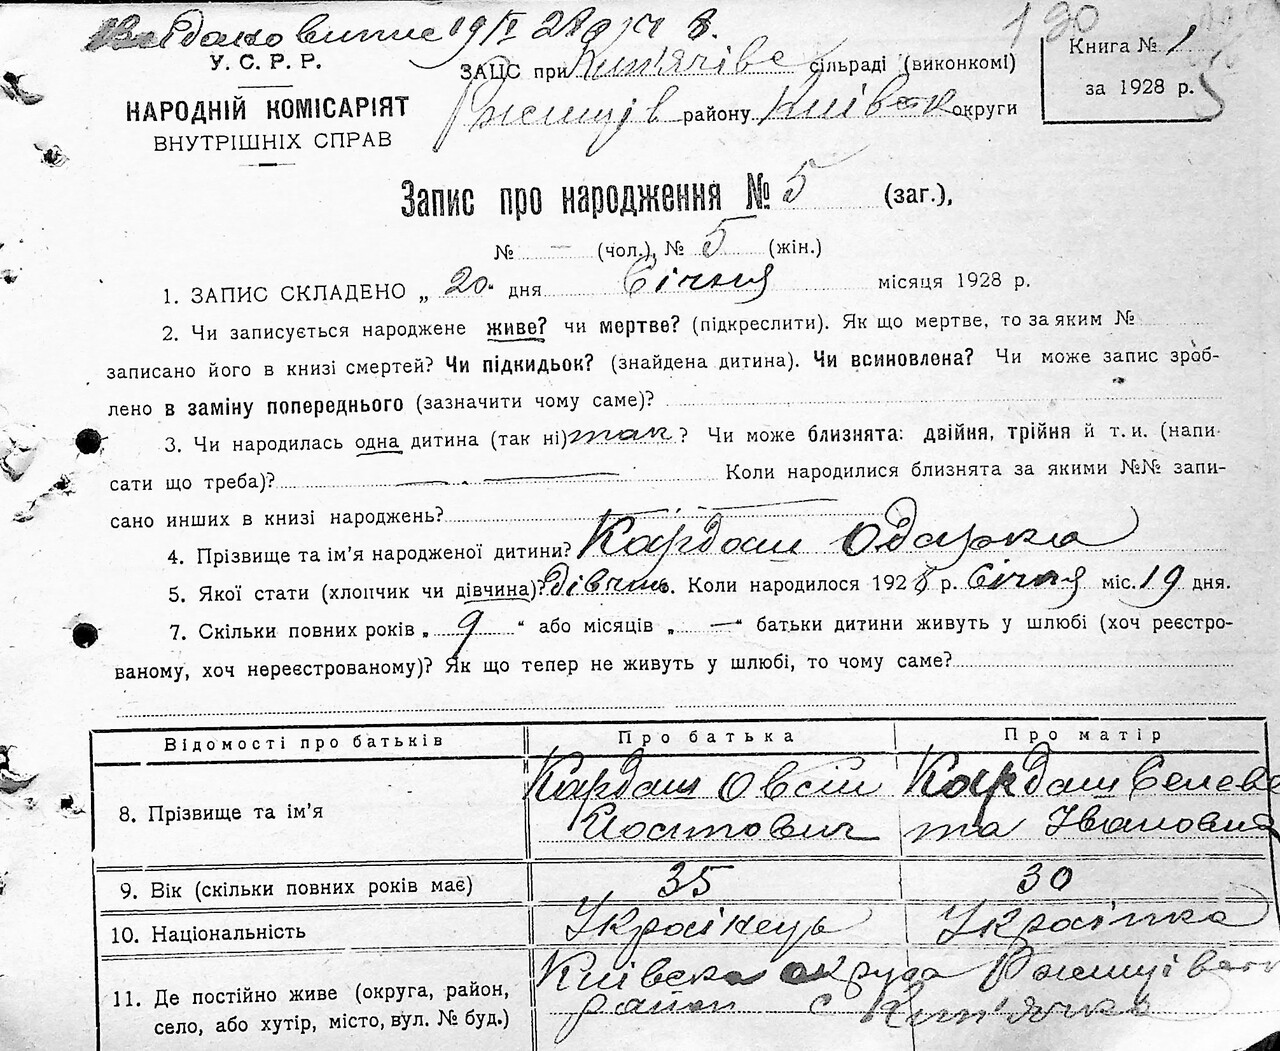 Видано виписс 19/I 28 р ч 8.
190
У. С. Р. Р.
НАРОДНІЙ КОМІСАРІЯТ
ВНУТРІШНІХ СПРАВ
ЗАЦС при сільраді (виконкомі)
Ржищів району Київськ округи
Книга № 1
за 1928 р.
Запис про народження № 5 (заг.),
№ — (чол.), № 5 (жін.)
1. ЗАПИС СКЛАДЕНО „ 20 " дня Січня місяця 1928 р.
2. Чи записується народжене живе? чи мертве? (підкреслити). Як що мертве, то за яким №
записано його в книзі смертей? Чи підкидьок? (знайдена дитина). Чи всиновлена? Чи може запис зроб-
лено в заміну попереднього (зазначити чому саме)?
3. Чи народилась одна дитина (так ні) так? Чи може близнята: двійня, трійня й т. и. (напи-
сати що треба)? — Коли народилися близнята за якими №№ запи-
сано инших в книзі народжень? —
4. Прізвище та ім'я народженої дитини? Кардаш Одарка
5. Якої стати (хлопчик чи дівчина)? дівчина. Коли народилося 1928 р. Січня міс. 19 дня.
7. Скільки повних років „ 9 " або місяців „ — " батьки дитини живуть у шлюбі (хоч реєстро-
ваному, хоч нереєстрованому)? Як що тепер не живуть у шлюбі, то чому саме?
Відомості про батьків Про батька Про матір
8. Прізвище та ім'я Кардаш Овсій Кардаш Селеве
та Івановна
9. Вік (скільки повних років має) 35 30
10. Національність Українець Українка
11. Де постійно живе (округа, район,
село, або хутір, місто, вул. № буд.)
Київська округа Ржищівськ
район с